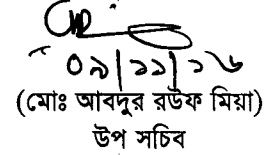 ০৯/১১/১৬
(মোঃ আবদুর রউফ মিয়া)
উপ সচিব